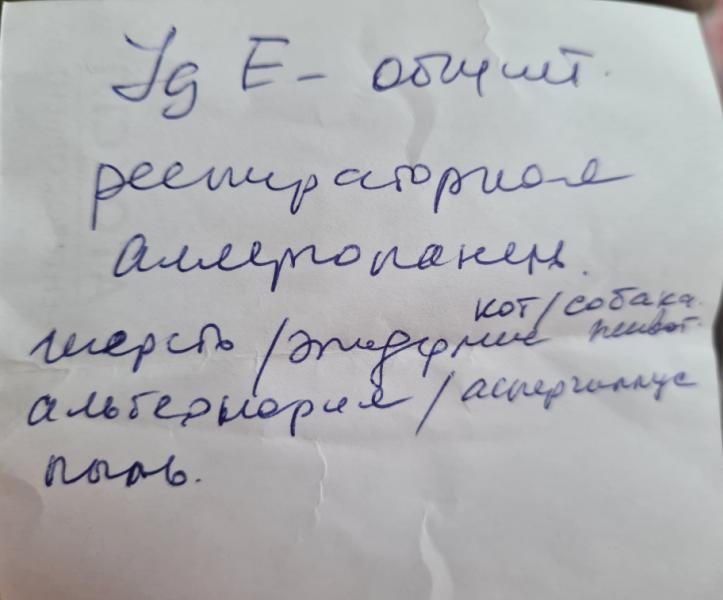 Ig E - общий.
респираторная
аллергопанель.
кот/собака.
шерсть / эпидермис живот.
альтернария / аспергиллус
пыль.